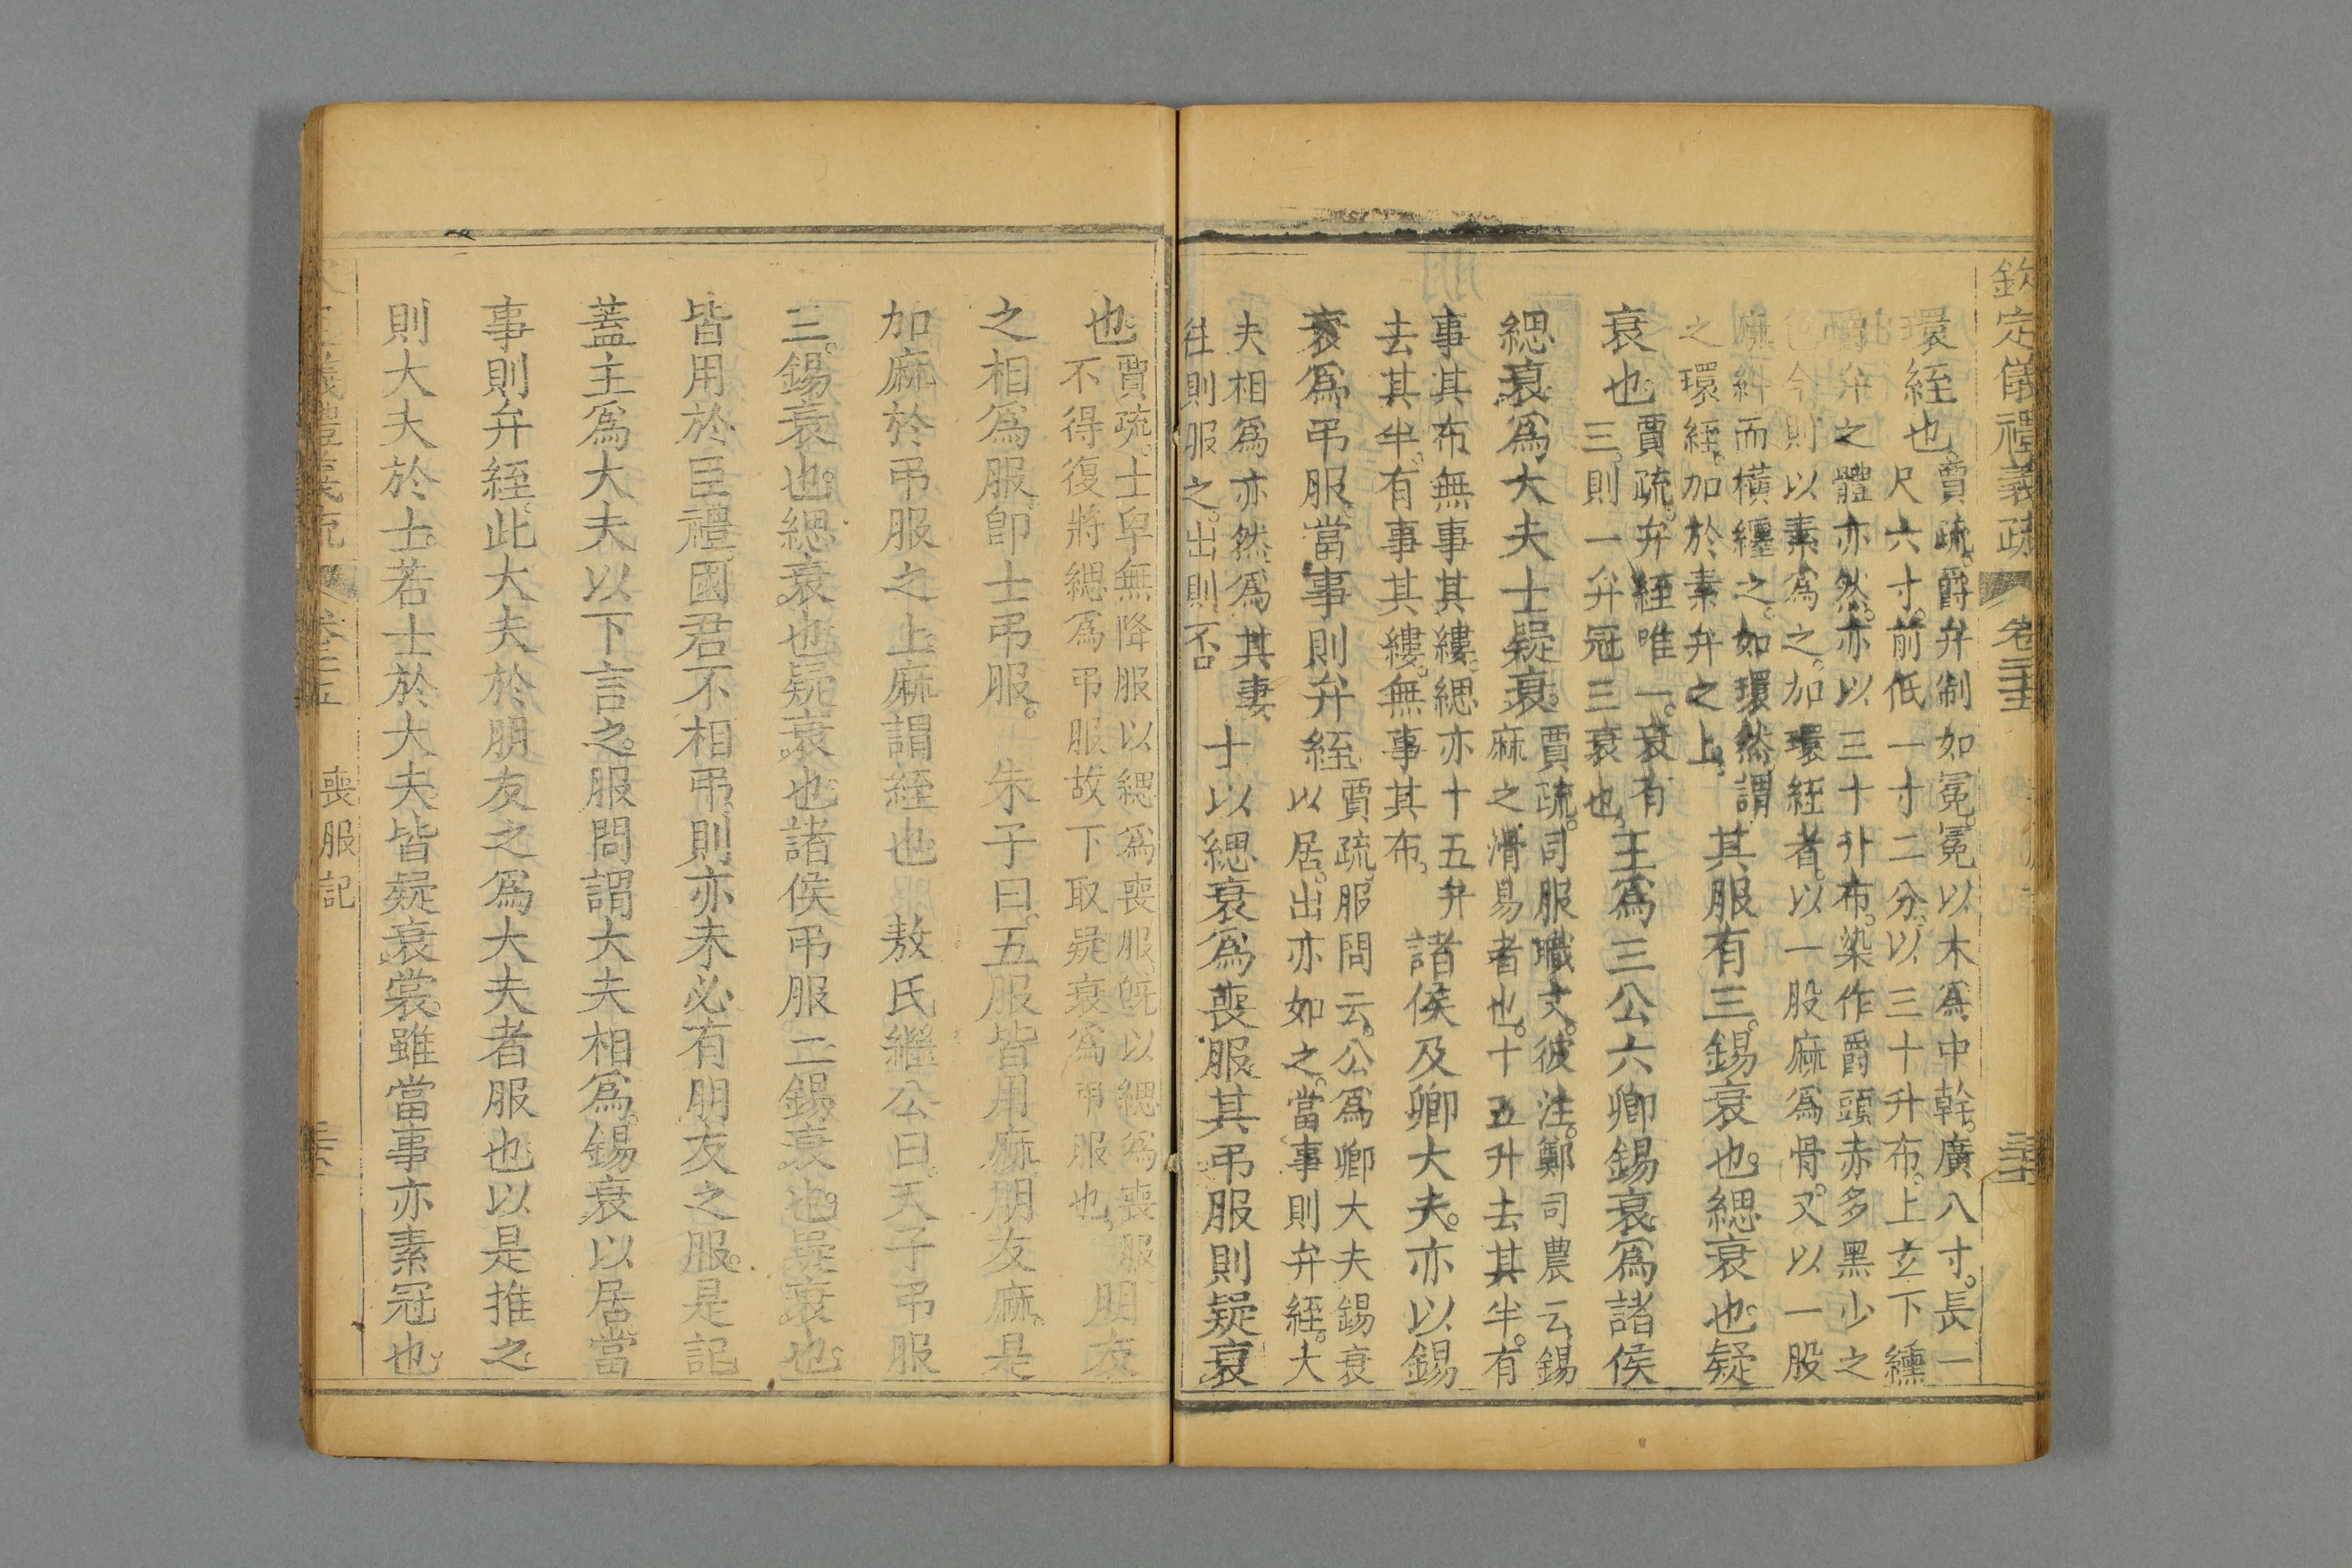 欽定儀禮義疏 卷二十五
環絰也賈疏。爵弁制如冕。冕以木爲中幹。廣八寸。長一
尺六寸。前低一寸二分。以三十升布。上玄下纁
爵弁之體亦然。亦以三十升布。染作爵頭赤多黑少之
今則以素爲之。加環絰者。以一股麻爲骨。又以一股
麻糾而橫纏之。如環然。謂
之環絰。加於素弁之上。
其服有三。錫衰也。緦衰也。疑
衰也賈疏。弁絰唯一。衰有
三。則一弁冠三衰也。
王爲三公六卿錫衰爲諸侯
緦衰爲大夫士疑衰。賈疏。司服職文。彼注。鄭司農云。錫
麻之滑易者也。十五升去其半。有
事其布無事其縷。緦亦十五升
去其半。有事其縷。無事其布。
諸侯及卿大夫。亦以錫
衰爲弔服。當事則弁絰賈疏。服問云。公爲卿大夫錫衰
以居。出亦如之。當事則弁絰。大
夫相爲亦然。爲其妻
往則服之。出則否
士以緦衰爲喪服其弔服則疑衰
也賈疏。士卑無降服。以緦爲喪服。旣以緦爲喪服。
不得復將緦爲弔服。故下取疑衰爲弔服也。
朋友
之相爲服。卽士弔服。朱子曰。五服皆用麻。朋友麻。是
加麻於弔服之上。麻謂絰也 敖氏繼公曰。天子弔服
三。錫衰也。緦衰也。疑衰也。諸侯弔服二。錫衰也。疑衰也。
皆用於臣禮。國君不相弔。則亦未必有朋友之服。是記
蓋主爲大夫以下言之。服問謂大夫相爲。錫衰以居。當
事則弁絰。此大夫於朋友之爲大夫者服也。以是推之
則大夫於士。若士於大夫。皆疑衰裳。雖當事亦素冠也。
喪服記